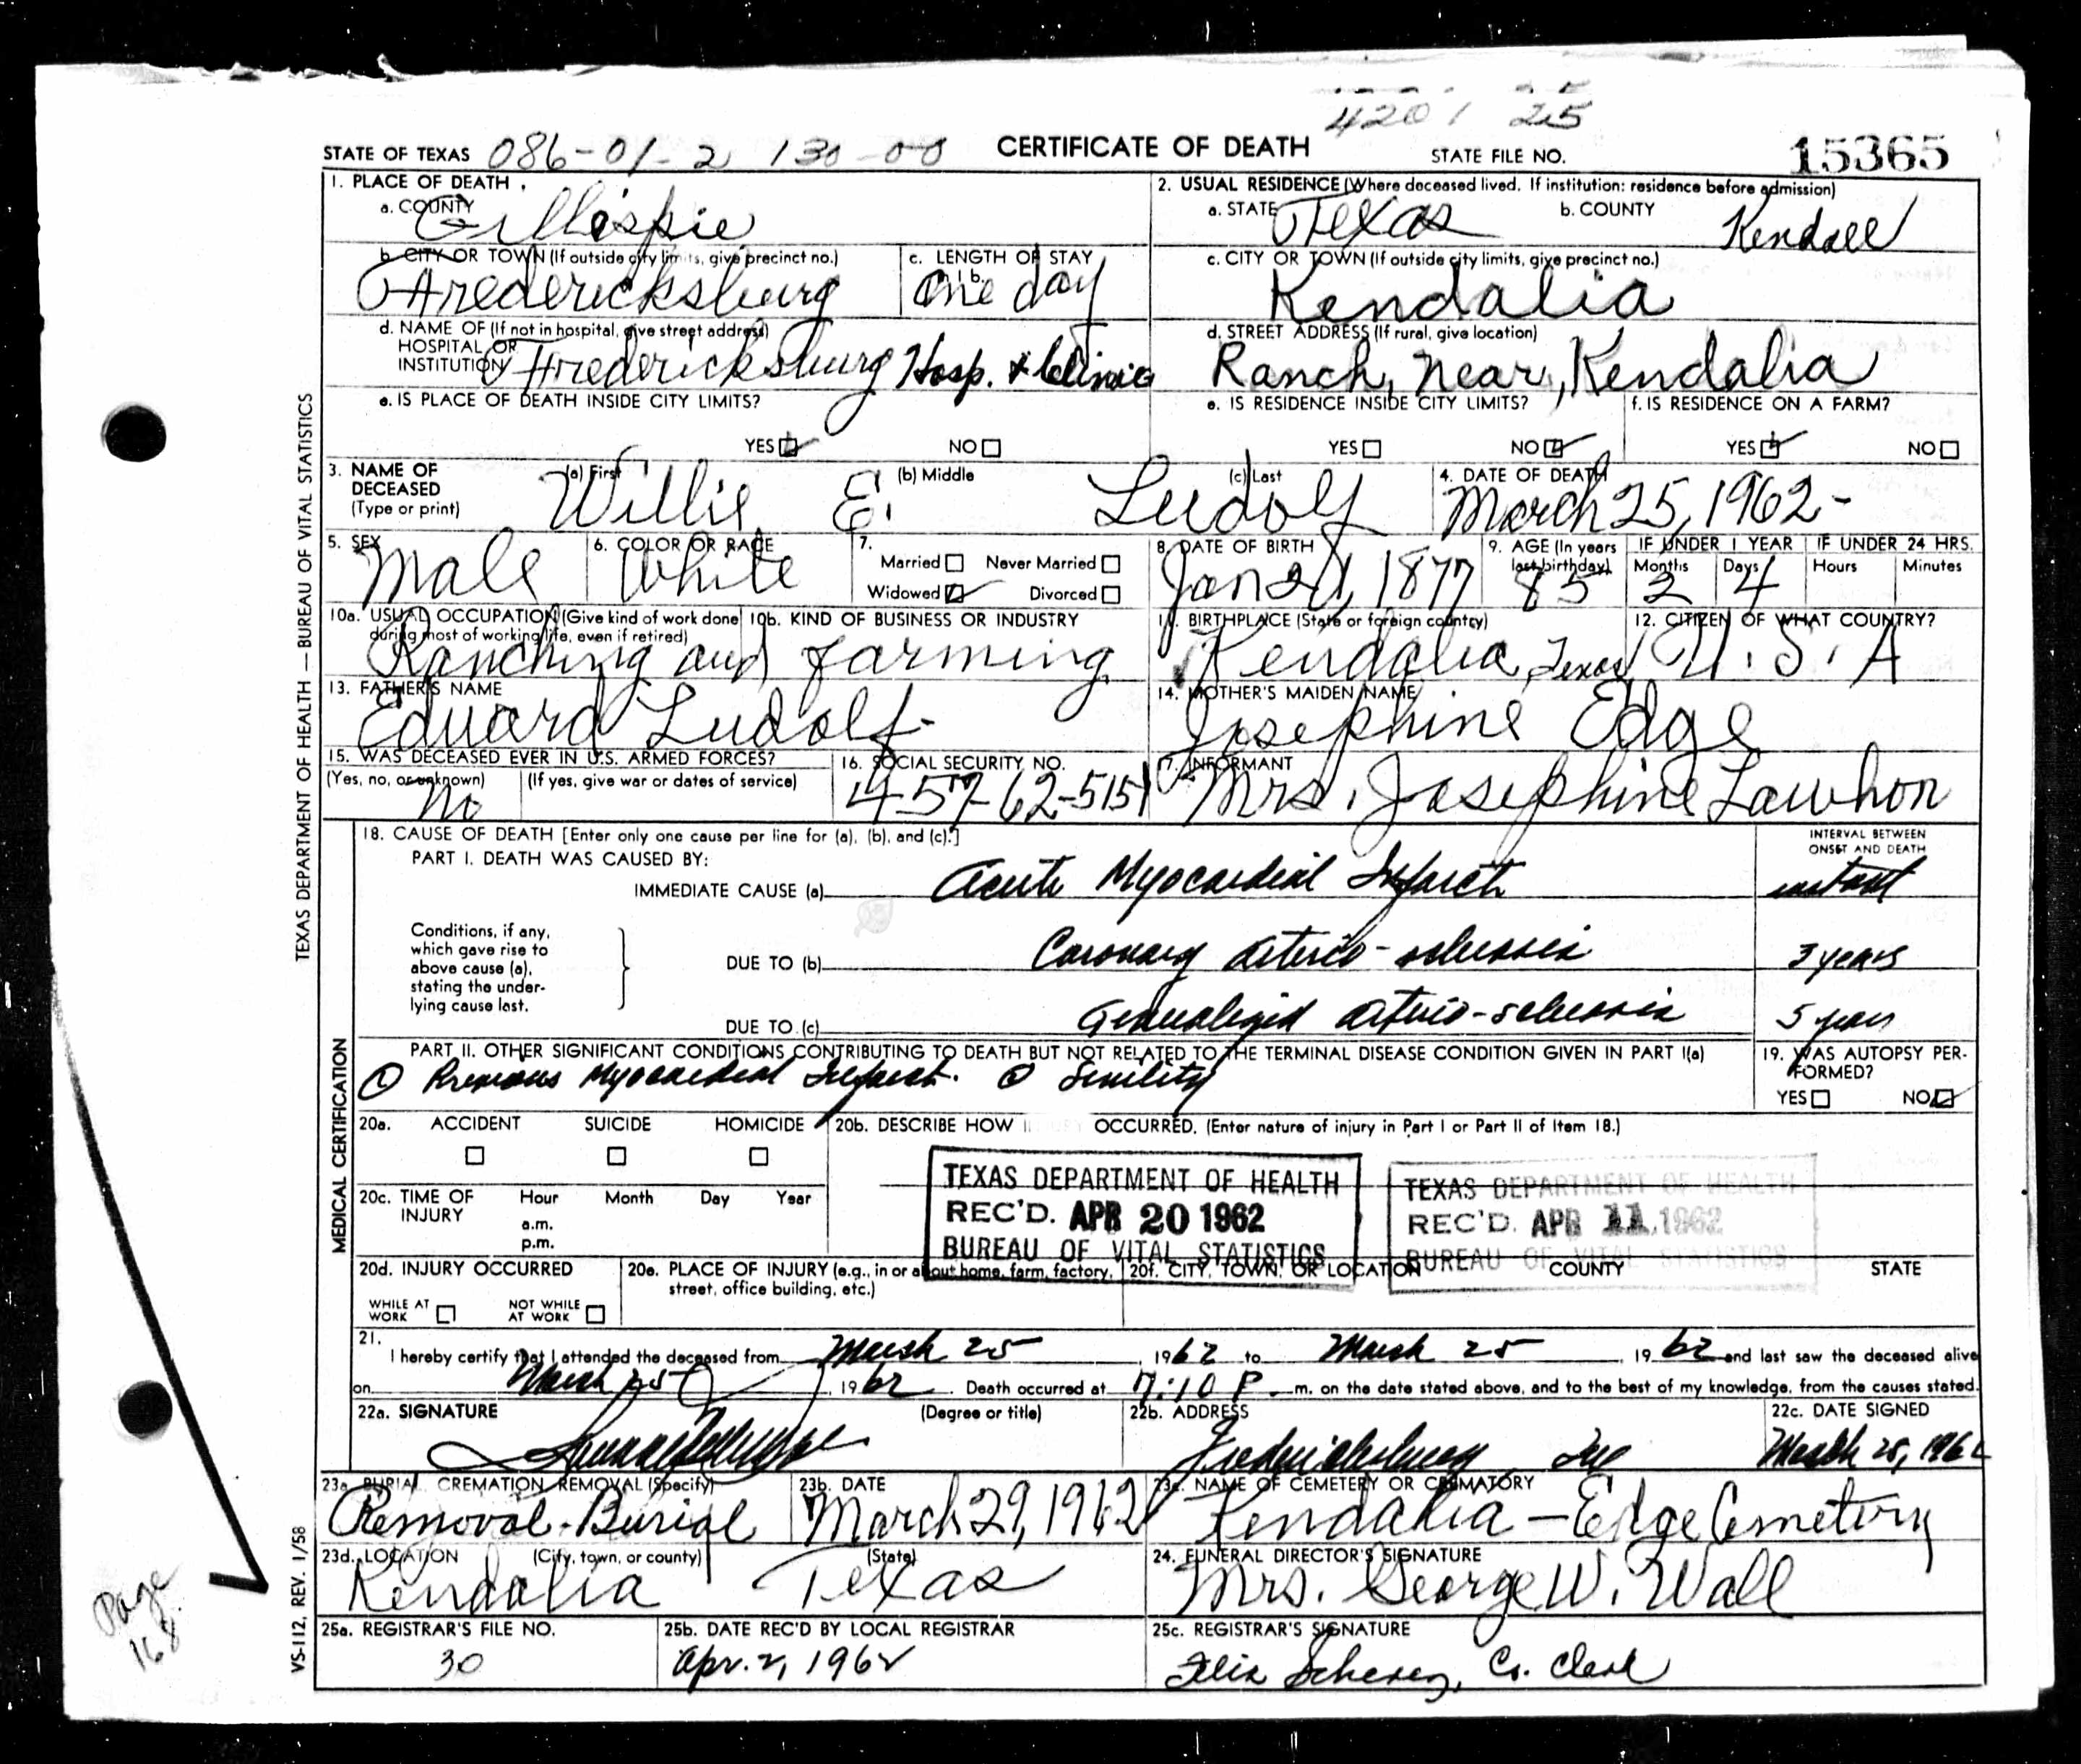 4201 25
STATE OF TEXAS 086-01-2 130-00 CERTIFICATE OF DEATH STATE FILE NO. 15365
1. PLACE OF DEATH
a. COUNTY Gillespie
2. USUAL RESIDENCE (Where deceased lived. If institution: residence before admission)
a. STATE Texas b. COUNTY Kendall
b. CITY OR TOWN (If outside city limits, give precinct no.) Fredericksburg
c. LENGTH OF STAY 1b. One day
c. CITY OR TOWN (If outside city limits, give precinct no.) Kendalia
d. NAME OF (If not in hospital, give street address)
HOSPITAL OR
INSTITUTION Fredericksburg Hosp. & Clinic
d. STREET ADDRESS (If rural, give location)
Ranch, Near, Kendalia
e. IS PLACE OF DEATH INSIDE CITY LIMITS?
YES NO
e. IS RESIDENCE INSIDE CITY LIMITS?
YES NO
f. IS RESIDENCE ON A FARM?
YES NO
3. NAME OF DECEASED (Type or print)
(a) First Willie (b) Middle E. (c) Last Ludolf
4. DATE OF DEATH March 25, 1962-
5. SEX Male
6. COLOR OR RACE White
7. Married Never Married
Widowed Divorced
8. DATE OF BIRTH Jan 21, 1877
9. AGE (In years last birthday) 85
IF UNDER 1 YEAR Months 2 Days 4
IF UNDER 24 HRS. Hours Minutes
10a. USUAL OCCUPATION (Give kind of work done during most of working life, even if retired)
10b. KIND OF BUSINESS OR INDUSTRY
Ranching and farming
11. BIRTHPLACE (State or foreign country) Kendalia, Texas
12. CITIZEN OF WHAT COUNTRY? U.S.A
13. FATHER'S NAME Eduard Ludolf
14. MOTHER'S MAIDEN NAME Josephine Edge
15. WAS DECEASED EVER IN U.S. ARMED FORCES?
(Yes, no, or unknown) No (If yes, give war or dates of service)
16. SOCIAL SECURITY NO. 457-62-5151
17. INFORMANT Mrs. Josephine Lawhon
18. CAUSE OF DEATH [Enter only one cause per line for (a), (b), and (c).]
INTERVAL BETWEEN ONSET AND DEATH
PART I. DEATH WAS CAUSED BY:
IMMEDIATE CAUSE (a) Acute Myocardial Infarct instant
Conditions, if any,
which gave rise to
above cause (a),
stating the under-
lying cause last.
DUE TO (b) Coronary arterio-sclerosis 3 years
DUE TO (c) Generalized arterio-sclerosis 5 years
PART II. OTHER SIGNIFICANT CONDITIONS CONTRIBUTING TO DEATH BUT NOT RELATED TO THE TERMINAL DISEASE CONDITION GIVEN IN PART I(a)
① Previous Myocardial Infarct. ② Senility
19. WAS AUTOPSY PER-
FORMED?
YES NO
20a. ACCIDENT SUICIDE HOMICIDE
20b. DESCRIBE HOW OCCURRED. (Enter nature of injury in Part I or Part II of Item 18.)
20c. TIME OF INJURY Hour Month Day Year
a.m.
p.m.
TEXAS DEPARTMENT OF HEALTH
REC'D. APR 20 1962
BUREAU OF VITAL STATISTICS
TEXAS DEPARTMENT OF HEALTH
REC'D. APR 11 1962
BUREAU OF VITAL STATISTICS
20d. INJURY OCCURRED
WHILE AT WORK NOT WHILE AT WORK
20e. PLACE OF INJURY (e.g., in or about home, farm, factory,
street, office building, etc.)
20f. CITY, TOWN, OR LOCATION COUNTY STATE
21.
I hereby certify that I attended the deceased from March 25, 1962 to March 25, 1962 and last saw the deceased alive
on March 25, 1962. Death occurred at 7:10 P.m. on the date stated above, and to the best of my knowledge, from the causes stated.
22a. SIGNATURE (Degree or title)
22b. ADDRESS Fredericksburg
22c. DATE SIGNED March 28, 1962
23a. BURIAL CREMATION REMOVAL (Specify) Removal-Burial
23b. DATE March 29, 1962
23c. NAME OF CEMETERY OR CREMATORY Kendalia - Edge Cemetery
23d. LOCATION (City, town, or county) (State)
Kendalia Texas
24. FUNERAL DIRECTOR'S SIGNATURE
Mrs. George W. Wall
25a. REGISTRAR'S FILE NO. 30
25b. DATE REC'D BY LOCAL REGISTRAR Apr. 2, 1962
25c. REGISTRAR'S SIGNATURE
Co. Clerk
TEXAS DEPARTMENT OF HEALTH — BUREAU OF VITAL STATISTICS
MEDICAL CERTIFICATION
VS-112, REV. 1/58
Page
168